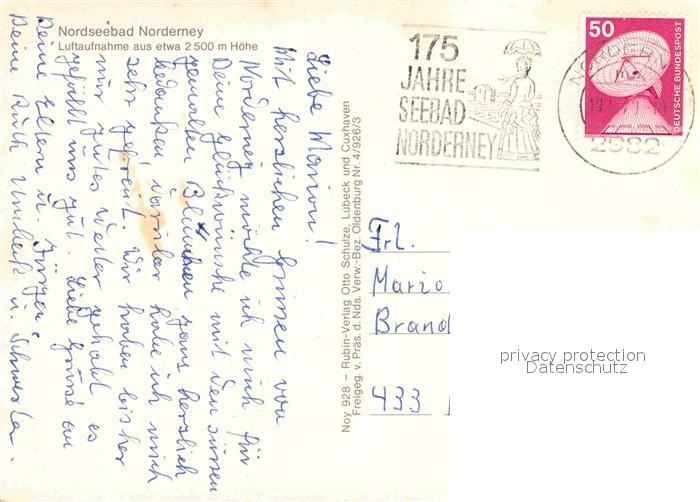 Nordseebad Norderney
Luftaufnahme aus etwa 2 500 m Höhe
175
JAHRE
SEEBAD
NORDERNEY
50
DEUTSCHE BUNDESPOST
2982
Liebe Marion!
Mit herzlichen Grüssen von
Norderney möchte ich mich für
Deine Glückwünsche mit den süssen
gemalten Blumen ganz herzlich
bedanken, darüber habe ich mich
sehr gefreut. Wir haben bisher
nur gutes Wetter gehabt es
gefällt uns gut. Liebe Grüsse an
Deine Eltern u. Jürgen
Deine Ruth u. Schwester.
Noy 928 – Rubin-Verlag Otto Schulze, Lübeck und Cuxhaven
Freigeg. v. Präs. d. Nds. Verw.-Bez. Oldenburg Nr. 4/926/3
Frl.
Mario
Brand
433
privacy protection
Datenschutz